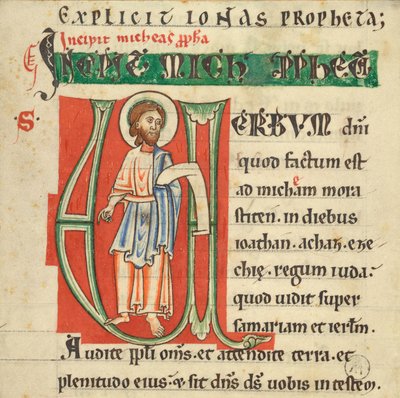 EXPLICIT IONAS PROPHETA;
Incipit micheas ppha
INCIPIT MICH PPHETA
S.
VERBVM dñi
quod factum est
ad micheam mora
sticen. in diebus
ioathan. achaz. eze
chię. regum iuda:
quod uidit super
samariam et ierlm̄.
Audite ppli om̄s. et attendite terra. et
plenitudo eius: & sit dñs dš uobis in testem.